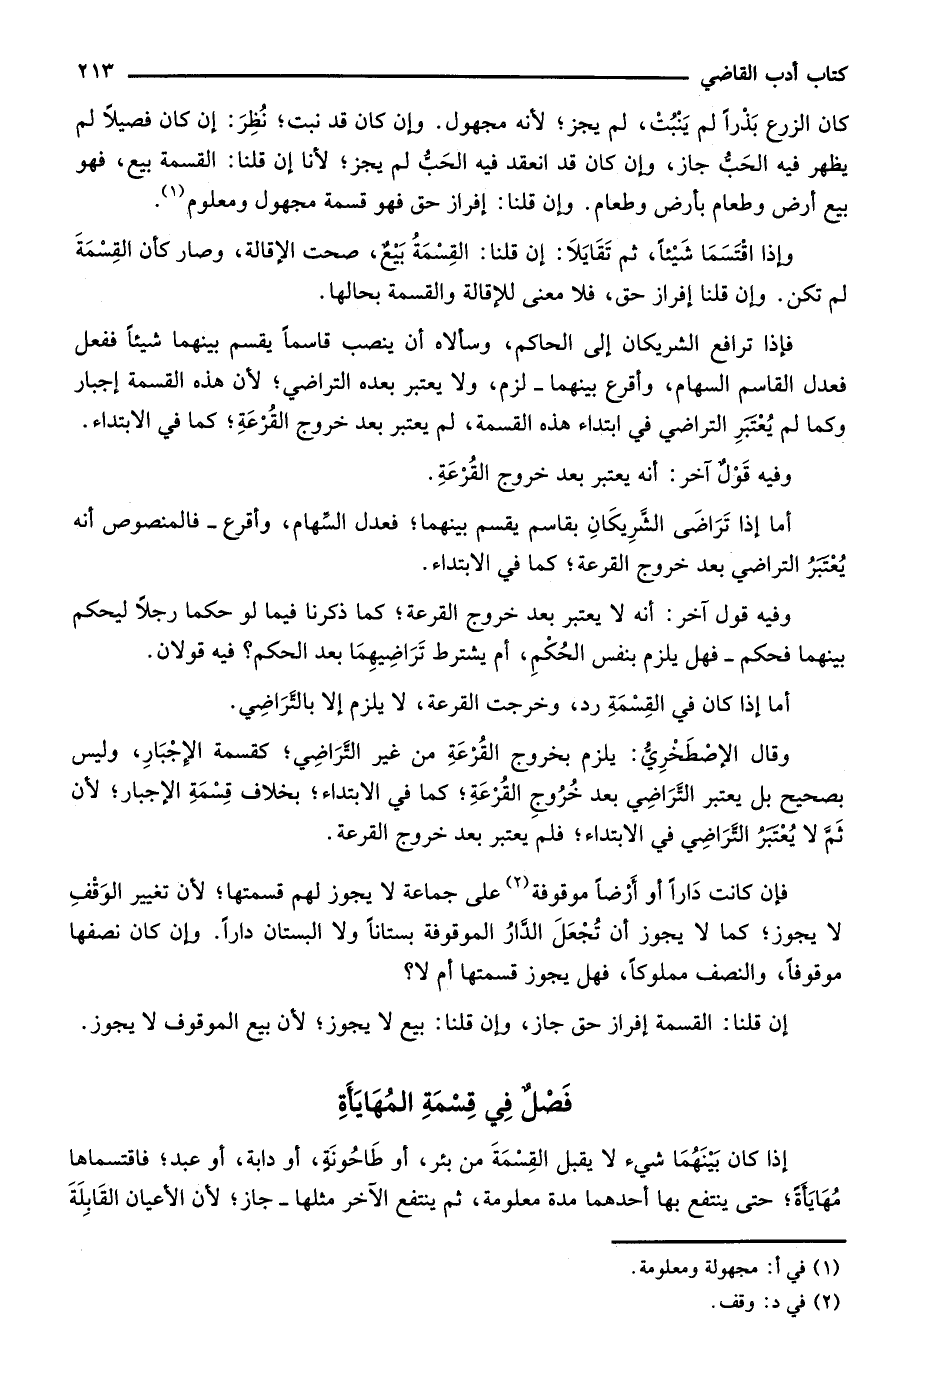 كتاب أدب القاضي ــــــــــــــــــــ ٢١٣
كان الزرع بَذْراً لم يَنْبُتْ، لم يجز؛ لأنه مجهول. وإن كان قد نبت؛ نُظِرَ: إن كان فصيلاً لم
يظهر فيه الحَبُّ جاز، وإن كان قد انعقد فيه الحَبُّ لم يجز؛ لأنا إن قلنا: القسمة بيع، فهو
بيع أرض وطعام بأرض وطعام. وإن قلنا: إفراز حق فهو قسمة مجهول ومعلوم(١).
وإذا اقْتَسَمَا شَيْئاً، ثم تَقَايَلاَ: إن قلنا: القِسْمَةُ بَيْعٌ، صحت الإقالة، وصار كأن القِسْمَةَ
لم تكن. وإن قلنا إفراز حق، فلا معنى للإقالة والقسمة بحالها.
فإذا ترافع الشريكان إلى الحاكم، وسألاه أن ينصب قاسماً يقسم بينهما شيئاً ففعل
فعدل القاسم السهام، وأقرع بينهما ـ لزم، ولا يعتبر بعده التراضي؛ لأن هذه القسمة إجبار
وكما لم يُعْتَبَرِ التراضي في ابتداء هذه القسمة، لم يعتبر بعد خروج القُرْعَةِ؛ كما في الابتداء.
وفيه قَوْلٌ آخر: أنه يعتبر بعد خروج القُرْعَةِ.
أما إذا تَرَاضَى الشَّرِيكَانِ بقاسم يقسم بينهما؛ فعدل السِّهام، وأقرع ـ فالمنصوص أنه
يُعْتَبَرُ التراضي بعد خروج القرعة؛ كما في الابتداء.
وفيه قول آخر: أنه لا يعتبر بعد خروج القرعة؛ كما ذكرنا فيما لو حكما رجلاً ليحكم
بينهما فحكم ـ فهل يلزم بنفس الحُكْمِ، أم يشترط تَرَاضِيهِمَا بعد الحكم؟ فيه قولان.
أما إذا كان في القِسْمَةِ رد، وخرجت القرعة، لا يلزم إلا بالتَّرَاضِي.
وقال الإصْطَخْرِيُّ: يلزم بخروج القُرْعَةِ من غير التَّرَاضِي؛ كقسمة الإجْبَارِ، وليس
بصحيح بل يعتبر التَّرَاضِي بعد خُرُوجِ القُرْعَةِ؛ كما في الابتداء؛ بخلاف قِسْمَةِ الإجبار؛ لأن
ثَمَّ لا يُعْتَبَرُ التَّرَاضِي في الابتداء؛ فلم يعتبر بعد خروج القرعة.
فإن كانت دَاراً أو أَرْضاً موقوفة(٢) على جماعة لا يجوز لهم قسمتها؛ لأن تغيير الوَقْفِ
لا يجوز؛ كما لا يجوز أن تُجْعَلَ الدَّارُ الموقوفة بستاناً ولا البستان داراً. وإن كان نصفها
موقوفاً، والنصف مملوكاً، فهل يجوز قسمتها أم لا؟
إن قلنا: القسمة إفراز حق جاز، وإن قلنا: بيع لا يجوز؛ لأن بيع الموقوف لا يجوز.
فَصْلٌ فِي قِسْمَةِ المُهَايَأَةِ
إذا كان بَيْنَهُمَا شيء لا يقبل القِسْمَةَ من بئر، أو طَاحُونَةٍ، أو دابة، أو عبد؛ فاقتسماها
مُهَايَأَةً؛ حتى ينتفع بها أحدهما مدة معلومة، ثم ينتفع الآخر مثلها ـ جاز؛ لأن الأعيان القَابِلَةَ
(١) في أ: مجهولة ومعلومة.
(٢) في د: وقف.